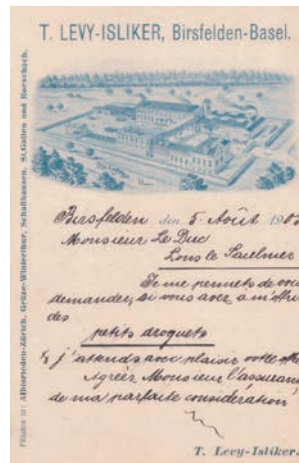 T. LEVY-ISLIKER, Birsfelden-Basel.
Filialen in: Albisrieden-Zürich, Grüze-Winterthur, Schaffhausen, St. Gallen und Rorschach.
Birsfelden den 5. Août 190
Monsieur Le Duc
Lons le Saulnier
Je me permets de vous
demander, si vous avez à m'offrir
des
petits droguets
& j'attends avec plaisir votre
Agréez Monsieur l'assurance
de ma parfaite considération
T. Levy-Isliker.